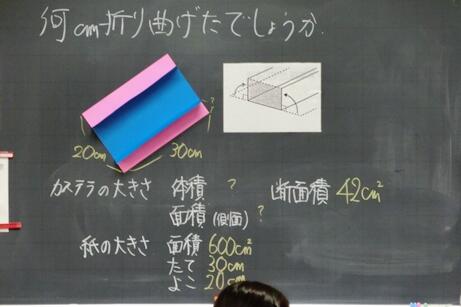 何cm折り曲げたでしょうか.
?
20cm
30cm
カステラの大きさ 体積 ? 断面積 42cm²
面積(側面) ?
紙の大きさ 面積 600cm²
たて 30cm
よこ 20cm